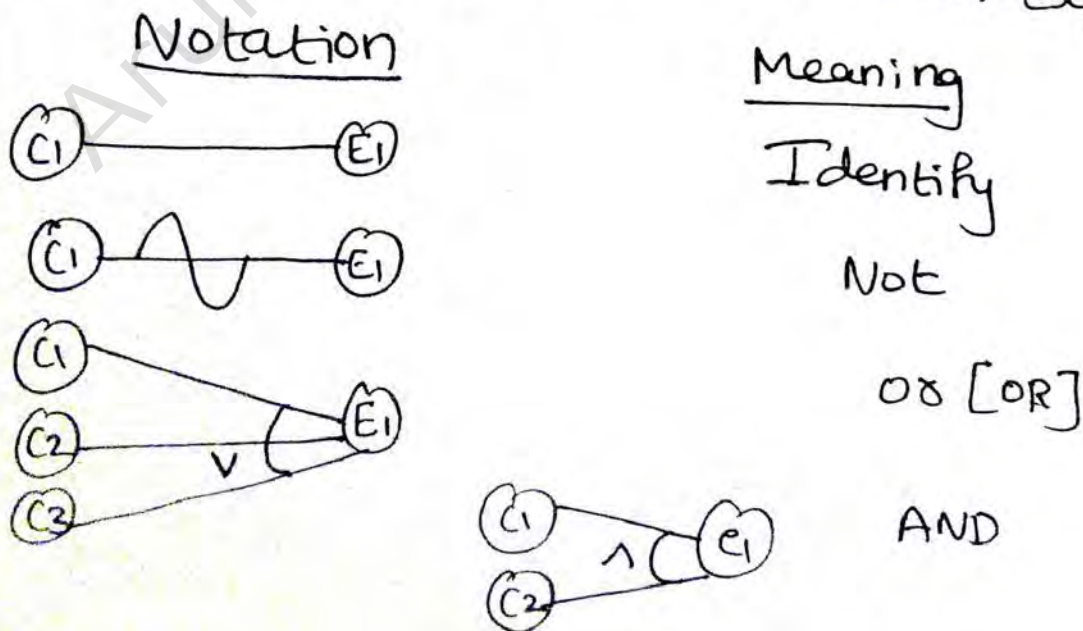 Notation
Meaning
C1 E1
Identify
C1 E1
Not
C1
C2 V E1
C3
or [OR]
C1
C2 ^ e1
AND